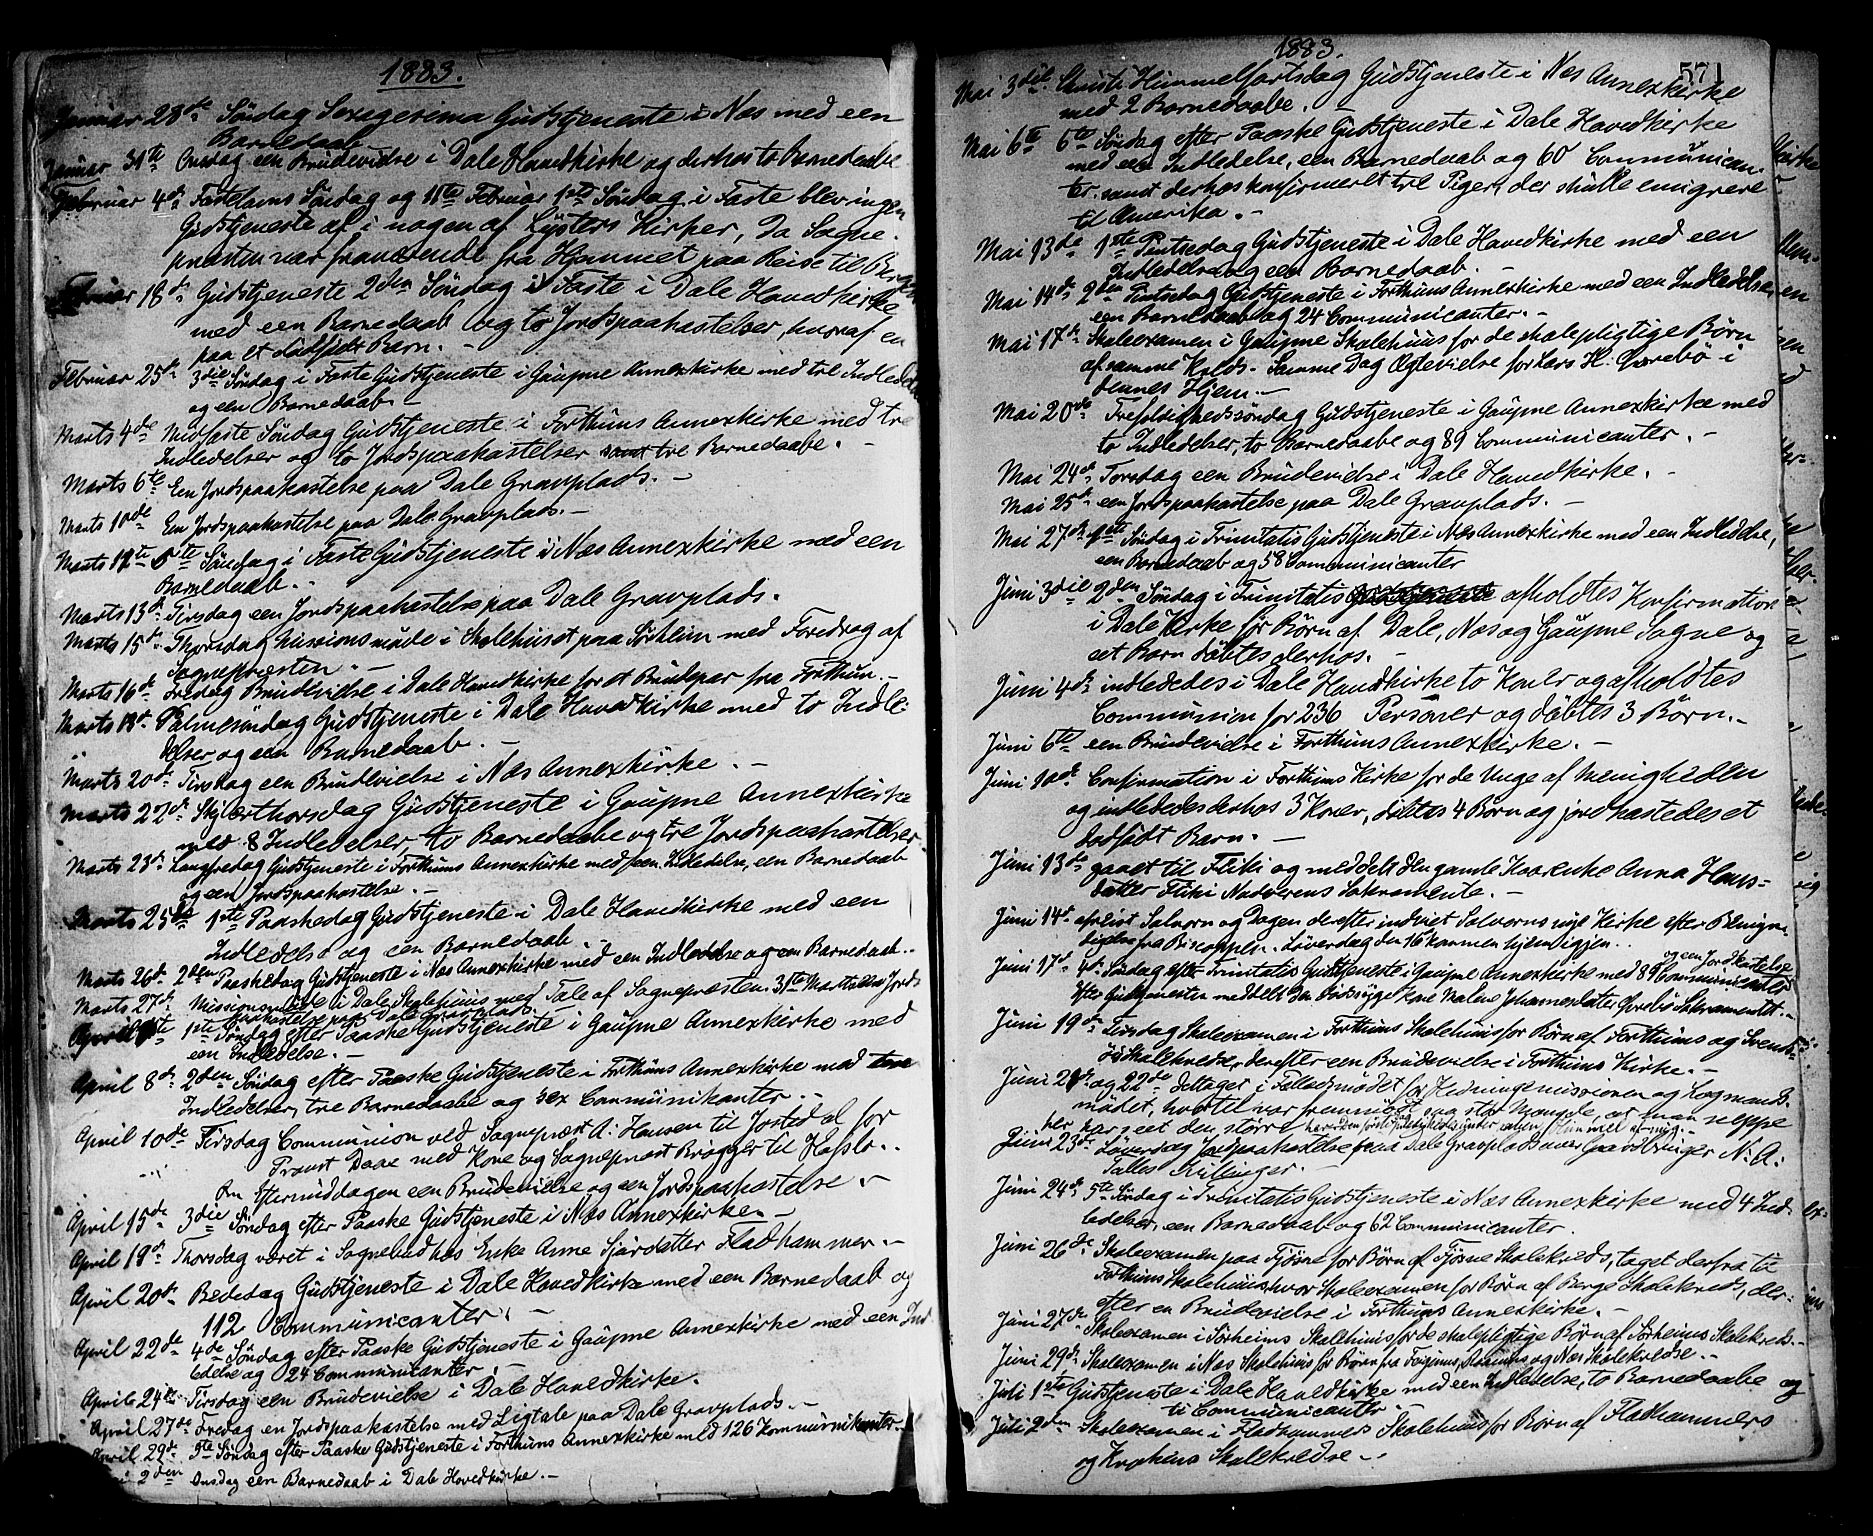 1883.
Januar 28de Søndag Sexegesima Gudstjeneste i Næs med een
Barnedaab
Januar 31te Onsdag een Brudevielse i Dale Hovedkirke og derhos to Barnedaabe
Februar 4de Fastelavns Søndag og 11te Februar 1ste Søndag i Faste blev ingen
Gudstjeneste af i nogen af Lysters Kirker, da Sogne-
præsten var fraværende fra Hjemmet paa Reise til Bergen
Februar 18de Gudstjeneste 2den Søndag i Faste i Dale Hovedkirke
med een Barnedaab og to Jordspaakastelser, hvoraf en
paa et dødfødt Barn. -
Februar 25de 3die Søndag i Faste Gudstjeneste i Gaupne Annexkirke med tre Indledelser
og een Barnedaab. -
Marts 4de Midfaste Søndag Gudstjeneste i Forthuns Annexkirke med tre
Indledelser og to Jordspaakastelser samt tre Barnedaabe. -
Marts 6te Een Jordspaakastelse paa Dale Gravplads. -
Marts 10de Een Jordspaakastelse paa Dale Gravplads. -
Marts 11te 5te Søndag i Faste Gudstjeneste i Næs Annexkirke med een
Barnedaab. -
Marts 13de Tirsdag een Jordspaakastelse paa Dale Gravplads.
Marts 15de Thorsdag Missionsmøde i Skolehuset paa Sørheim med Foredrag af
Sognepræsten. -
Marts 16de Fredag Brudevielse i Dale Hovedkirke for et Brudepar fra Forthun. -
Marts 18de Palmesøndag Gudstjeneste i Dale Hovedkirke med to Indle-
delser og een Barnedaab. -
Marts 20de Tirsdag een Brudevielse i Næs Annexkirke. -
Marts 22de Skjærthorsdag Gudstjeneste i Gaupne Annexkirke
med 8 Indledelser, to Barnedaabe og tre Jordspaakastelser.
Marts 23de Langfredag Gudstjeneste i Forthuns Annexkirke med een Indledelse, een Barnedaab
og een Jordspaakastelse. -
Marts 25de 1ste Paaskedag Gudstjeneste i Dale Hovedkirke med een
Indledelse og een Barnedaab. -
Marts 26de 2den Paaskedag Gudstjeneste i Næs Annexkirke med een Indledelse og een Barnedaab. -
Marts 27de Missionsmøde i Dale Skolehuus med Tale af Sognepræsten. 31te Marts een Jords-
paakastelse paa Dale Gravplads.
April 1ste 1ste Søndag efter Paaske Gudstjeneste i Gaupne Annexkirke med
een Indledelse. -
April 8de 2den Søndag efter Paaske Gudstjeneste i Forthuns Annexkirke med tre
Indledelser, tre Barnedaabe og sex Communikanter. -
April 10de Tirsdag Communion ved Sognepræst A. Hansen til Jostedal for
Provst Daae med Kone og Sognepræst Brøgger til Hafslo. -
Om Eftermiddagen een Brudevielse og een Jordspaakastelse. -
April 15de 3die Søndag efter Paaske Gudstjeneste i Næs Annexkirke. -
April 19de Thorsdag været i Sognebud hos Enke Anne Sjurdatter Fladhammer. -
April 20de Bededag Gudstjeneste i Dale Hovedkirke med een Barnedaab og
112 Communicanter. -
April 22de 4de Søndag efter Paaske Gudstjeneste i Gaupne Annexkirke med een Ind-
ledelse og 24 Communicanter -
April 24de Tirsdag een Brudevielse i Dale Hovedkirke.
April 27de Fredag en Jordspaakastelse med Ligtale paa Dale Gravplads. -
April 29de 5te Søndag efter Paaske Gudstjeneste i Forthuns Annexkirke med 126 Kommunikanter. -
2den Onsdag een Barnedaab i Dale Hovedkirke. -
1883.
571
Mai 3die Christi Himmelfartsdag Gudstjeneste i Næs Annexkirke
med 2 Barnedaabe. -
Mai 6te 6te Søndag efter Paaske Gudstjeneste i Dale Hovedkirke
med een Indledelse, een Barnedaab og 60 Communican-
ter, samt derhos konfirmeret tre Piger, der skulle emigrere
til Amerika. -
Mai 13de 1ste Pintsedag Gudstjeneste i Dale Hovedkirke med een
Indledelse og een Barnedaab. -
Mai 14de 2den Pintsedag Gudstjeneste i Forthuns Annexkirke med een Indledelse,
een Barnedaab og 24 Communicanter. -
Mai 17de Skoleexamen i Gaupne Skolehuus for de skolepligtige Børn
af samme Kreds. Samme Dag Ægtevielse for Lars H. Qværebø i
dennes Hjem. -
Mai 20de Trefoldighedssøndag Gudstjeneste i Gaupne Annexkirke med
to Indledelser, to Barnedaabe og 89 Communicanter. -
Mai 24de Torsdag een Brudevielse i Dale Hovedkirke. -
Mai 25de een Jordspaakastelse paa Dale Gravplads. -
Mai 27de 1ste Søndag i Trinitatis Gudstjeneste i Næs Annexkirke med een Indledelse,
een Barnedaab og 58 Communicanter
Juni 3die 2den Søndag i Trinitatis Gudstjeneste afholdtes Konfirmation
i Dale Kirke for Børn af Dale, Næs og Gaupne Sogne og
eet Barn døbtes derhos. -
Juni 4de indledes i Dale Hovedkirke to Koner og afholdtes
Communion for 236 Personer og døbtes 3 Børn. -
Juni 6te een Brudevielse i Forthuns Annexkirke. -
Juni 10de Confirmation i Forthuns Kirke for de Unge af Menigheden
og indledes derhos 3 Koner, døbtes 4 Børn og jordkastedes et
dødfødt Barn. -
Juni 13de gaaet til Fliki og meddelt den gamle Enke Anna Hans-
datter Fliki Nadverens Sakramente. -
Juni 14de afreist Solvorn og Dagen derefter indviet Solvorns nye Kirke efter Bemyn-
digelse fra Biscoppen. Løverdag den 16 kommen hjem igjen. -
og een Jordkastelse
Juni 17de 4de Søndag efter Trinitatis Gudstjeneste i Gaupne Annexkirke med 89 Communicanter
Efter Gudstjenesten meddelt den dødssyge Kone Malene Johannesdatter Qværebø Sakramentet. -
Juni 19de Tirsdag Skoleexamen i Forthuns Skolehuus for Børn af Forthuns og Svends-
øi Skolekredse, derefter een Brudevielse i Forthuns Kirke. -
Juni 21de og 22de deltaget i Fællesmødet for Hedningemissionen og Lægmands-
mødet, hvortil var fremmødt saa stor Mængde, at man neppe
her har seet den større
Juni 23de Løverdag Jordspaakastelse paa Dale Gravplads over Gaardbruger N. A.
Talles Killinger.
Juni 24de 5te Søndag i Trinitatis Gudstjeneste i Næs Annexkirke med 4 Ind-
ledelser, een Barnedaab og 62 Communicanter.
Juni 26de Skoleexamen paa Fjøsne for Børn af Fjøsne Skolekreds, taget derfra til
Forthuns Skolehuus, hvor Skoleexamen for Børn af Berge Skolekreds, der-
efter en Brudevielse i Forthuns Annexkirke. -
Juni 27de Skoleexamen i Sørheims Skolehuus for de skolepligtige Børn af Sørheims Skolekreds. -
Juni 29de Skoleexamen i Næs Skolehuus for Børn fra og Næs Skolekredse. -
Juli 1ste Gudstjeneste i Dale Hovedkirke med een Indledelse, to Barnedaabe og
ti Communicanter -
Juli 2den Skoleexamen i Fladhammers Skolehuus for Børn af Fladhammers
og Krokens Skolekredse. -